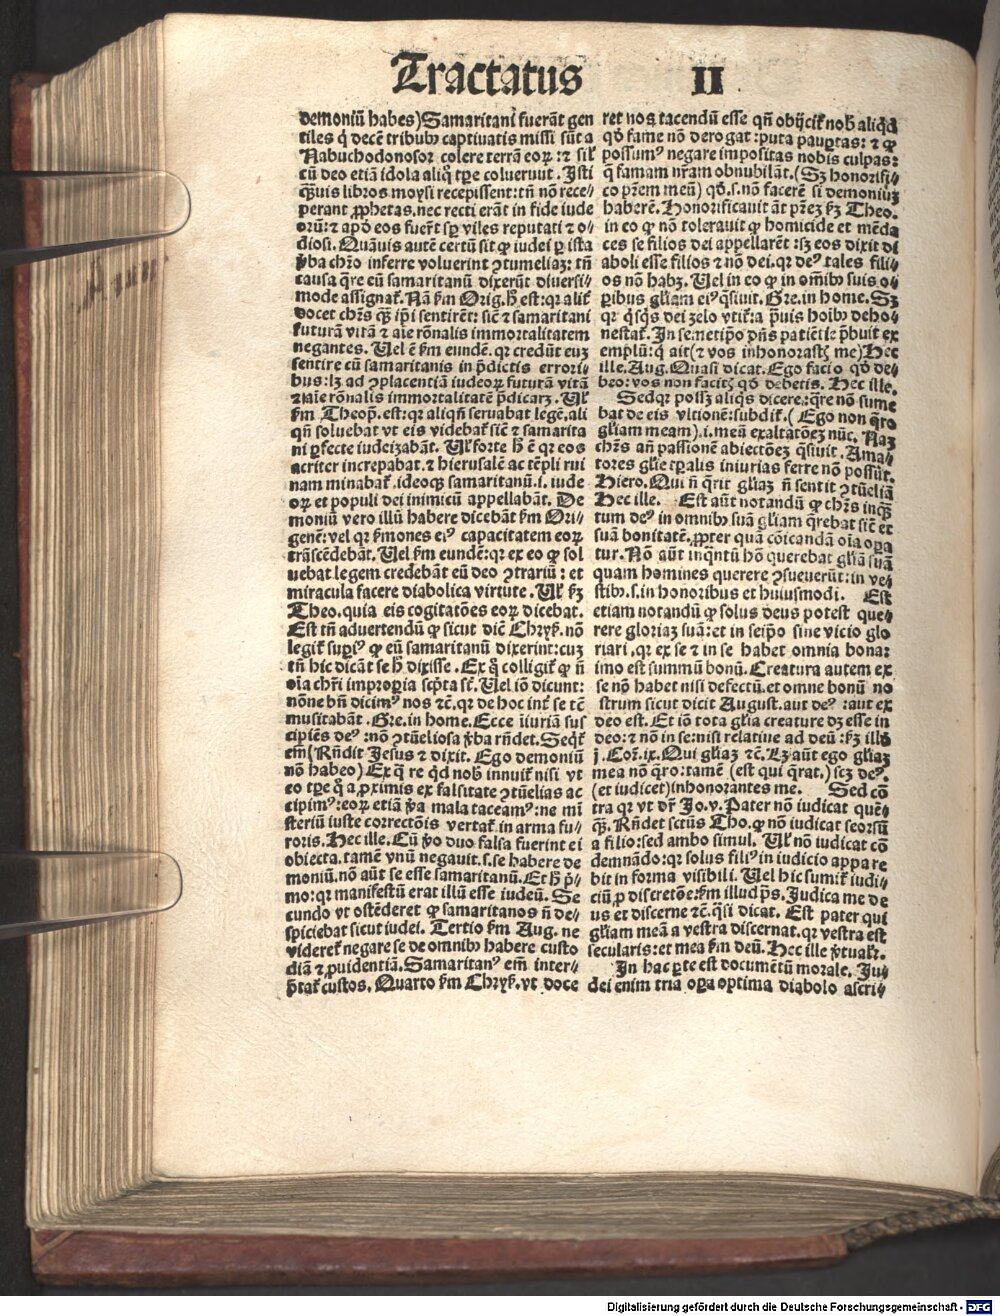 Tractatus II
demoniū habes) Samaritani fuerāt gen
tiles q̇ decē tribubꝫ captivatis missi sūt a
Nabuchodonosor colere terrā eoꝝ: ⁊ sil’
cū deo etiā idola aliq̄ tꝑe coluerunt. Isti
q̄uis libros moysi recepissent: tn̄ nō rece-
perant ꝓphetas. nec recti erāt in fide iude
orū: ⁊ apd̓ eos fuer̄t sꝑ viles reputati ⁊ o-
diosi. Quāuis autē certū sit ꝙ iudei ꝑ ista
v̓ba chr̄o inferre voluerint ↄtumeliaꝫ: tn̄
causa q̄re eū samaritanū dixerūt diuersi-
mode assignat̄. Nā ẜm Orig. h̓ est: qꝛ alit̓
docet chr̄s ꝙ̄ ip̄i sentirēt: sic̄ ⁊ samaritani
futurā vitā ⁊ aīe rōnalis immortalitatem
negantes. Uel ē ẜm eundē. qꝛ credūt euꝫ
sentire cū samaritanis in p̄dictis errori-
bus: lꝫ ad ↄplacentiā iudeoꝝ futurā vitā
⁊ aīe rōnalis immortalitatē p̄dicarꝫ. Ul̓
ẜm Theop̄. est: qꝛ aliqn̄ seruabat legē. ali
qn̄ soluebat vt eis videbat̄ sic̄ ⁊ samarita
ni ꝑfecte iudeizabāt. Ul̓ forte h̓ ē qꝛ eos
acriter increpabat. ⁊ hierusalē ac tēpli rui
nam minabat̄. ideoqꝫ samaritanū. i. iude
oꝝ et populi dei inimicū appellabāt. De
moniū vero illū habere dicebāt ẜm Ori-
genē: vel qꝛ ẜmones eiꝰ capacitatem eoꝝ
trāscēdebāt. Uel ẜm eundē: qꝛ ex eo ꝙ sol
uebat legem credebāt eū deo ↄtrariū: et
miracula facere diabolica virtute. Ul̓ ẜꝫ
Theo. quia eis cogitatōes eoꝝ dicebat.
Est tn̄ advertendū ꝙ sicut dic̄ Chryß. nō
legit̄ suꝑiꝰ ꝙ eū samaritanū dixerint: cuꝫ
tn̄ hic dicāt se h̓ dixisse. Ex q̊ colligit̄ ꝙ n̄
oīa chr̄i impropria scp̄ta st̄. Uel iō dicunt:
nōne bn̄ dicimꝰ nos ⁊c. qꝛ de hoc int̓ se tē
musitabāt. Gre. in home. Ecce iiuriā sus
cipiēs deꝰ: nō ↄtūeliosa v̓ba rn̄det. Seqt̄
em̄ (Rn̄dit Jesus ⁊ dixit. Ego demoniū
nō habeo) Ex q̄ re qd̓ nob̓ innuit̄ nisi vt
eo tꝑe q̊ a ꝓximis ex falsitate ↄtūelias ac
cipimꝰ: eoꝝ etiā v̓a mala taceamꝰ: ne mī
steriū iuste correctōis vertat̄ in arma fu-
roris. Hec ille. Cū v̓o duo falsa fuerint ei
obiecta. tamē vnū negauit. s. se habere de
moniū. nō aūt se esse samaritanū. Et h̓ p̓-
mo: qꝛ manifestū erat illū esse iudeū. Se
cundo vt ostēderet ꝙ samaritanos n̄ de-
spiciebat sicut iudei. Tertio ẜm Aug. ne
videret̄ negare se de omnibꝫ habere custo
diā ⁊ ꝓuidentiā. Samaritanꝰ em̄ inter-
p̄tat̄ custos. Quarto ẜm Chryß. vt doce
ret nos tacendū esse qn̄ obijcit̄ nob̓ aliqd̓
qd̓ fame nō derogat: puta pauꝑtas: ⁊ ꝙ
possumꝰ negare impositas nobis culpas:
q̄ famam nr̄am obnubilāt. (Sꝫ honorifi-
co pr̄em meū) qd̓. s. nō facerē si demoniuꝫ
haberē. Honorificauit āt pr̄eꝫ ẜꝫ Theo.
in eo ꝙ nō tolerauit ꝙ homicide et mēda
ces se filios dei appellarēt: sꝫ eos dixit di
aboli esse filios ⁊ nō dei. qꝛ deꝰ tales fili-
os nō habꝫ. Uel in eo ꝙ in om̄ibꝫ suis o-
ꝑibus gl̓iam eiꝰ q̄siuit. Gre. in home. Sꝫ
qꝛ q̇sq̇s dei zelo vtit̄: a prauis hoībꝫ deho-
nestat̄. In semetip̄o dn̄s patiētie p̄buit ex
emplū: q̇ ait (⁊ vos inhonorastꝭ me) Hec
ille. Aug. Quasi dicat. Ego facio qd̓ de-
beo: vos non facitꝭ qd̓ debetis. Hec ille.
Sed qꝛ possꝫ aliq̇s dicere: q̄re nō sume
bat de eis vltionē: subdit̄. (Ego non q̄ro
gl̓iam meam). i. meā exaltatōeꝫ nūc. Naꝫ
chr̄s an̄ passionē abiectōeꝫ q̄siuit. Ama-
tores gl̓ie tꝑalis iniurias ferre nō possūt.
Hiero. Qui n̄ q̄rit gl̓iaꝫ n̄ sentit ↄtūeliā
Hec ille. Est aūt notandū ꝙ chr̄s inqꝫ
tum deꝰ in omnibꝫ suā gl̓iam q̄rebat sic̄ et
suā bonitatē. ꝓpter quā cōicandā oīa oꝑa
tur. Nō aūt inq̄ntū hō querebat gl̓iā suā
quam homines querere ↄsueuerūt: in ve-
stibꝫ. s. in honoribus et huiusmodi. Est
etiam notandū ꝙ solus deus potest que-
rere gloriaꝫ suā: et in seip̄o sine vicio glo
riari. qꝛ ex se ⁊ in se habet omnia bona:
imo est summū bonū. Creatura autem ex
se nō habet nisi defectū. et omne bonū no
strum sicut dicit August. aut deꝰ: aut ex
deo est. Et iō tota gl̓ia creature dꝫ esse in
deo: ⁊ nō in se: nisi relatiue ad deū: ẜꝫ illd̓
j. Cor̄. ix. Qui gl̓iaꝫ ⁊c. Lꝫ aūt ego gl̓iaꝫ
mea nō q̄ro: tamē (est qui q̄rat.) scꝫ deꝰ.
(et iudicet) inhonorantes me. Sed cō
tra qꝛ vt dr̄ Jo. v. Pater nō iudicat quē-
q̄ꝫ. Rn̄det sctūs Tho. ꝙ nō iudicat seorsū
a filio: sed ambo simul. Ul̓ nō iudicat cō
demnādo: qꝛ solus filiꝰ in iudicio appare
bit in forma visibili. Uel hic sumit̄ iudi-
ciū ꝓ discretōe: ẜm illud ps̄. Judica me de
us et discerne ⁊c. q̄si dicat. Est pater qui
gl̓iam meā a vestra discernat. qꝛ vestra est
secularis: et mea ẜm deū. Hec ille v̓tualr̄.
In hac ꝑte est documētū morale. Ju-
dei enim tria oꝑa optima diabolo ascri-
Digitalisierung gefördert durch die Deutsche Forschungsgemeinschaft - DFG